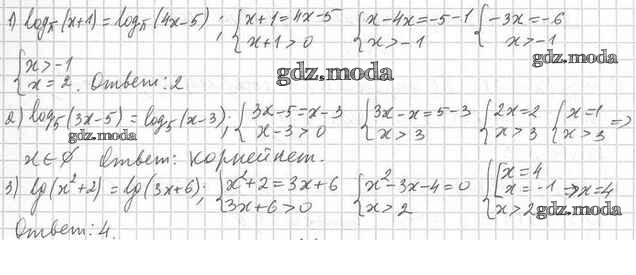 1) log_π(x+1) = log_π(4x-5); { x+1=4x-5 x+1>0 { x-4x=-5-1 x>-1 { -3x=-6 x>-1
{ x>-1 x=2. Ответ: 2
gdz.moda
gdz.moda
2) log₅(3x-5) = log₅(x-3); { 3x-5=x-3 x-3>0 { 3x-x=5-3 x>3 { 2x=2 x>3 { x=1 x>3 =>
gdz.moda
x∈∅ Ответ: корней нет.
3) lg(x²+2) = lg(3x+6); { x²+2=3x+6 3x+6>0 { x²-3x-4=0 x>2 { [ x=4 x=-1 x>2 => x=4
gdz.moda
Ответ: 4.